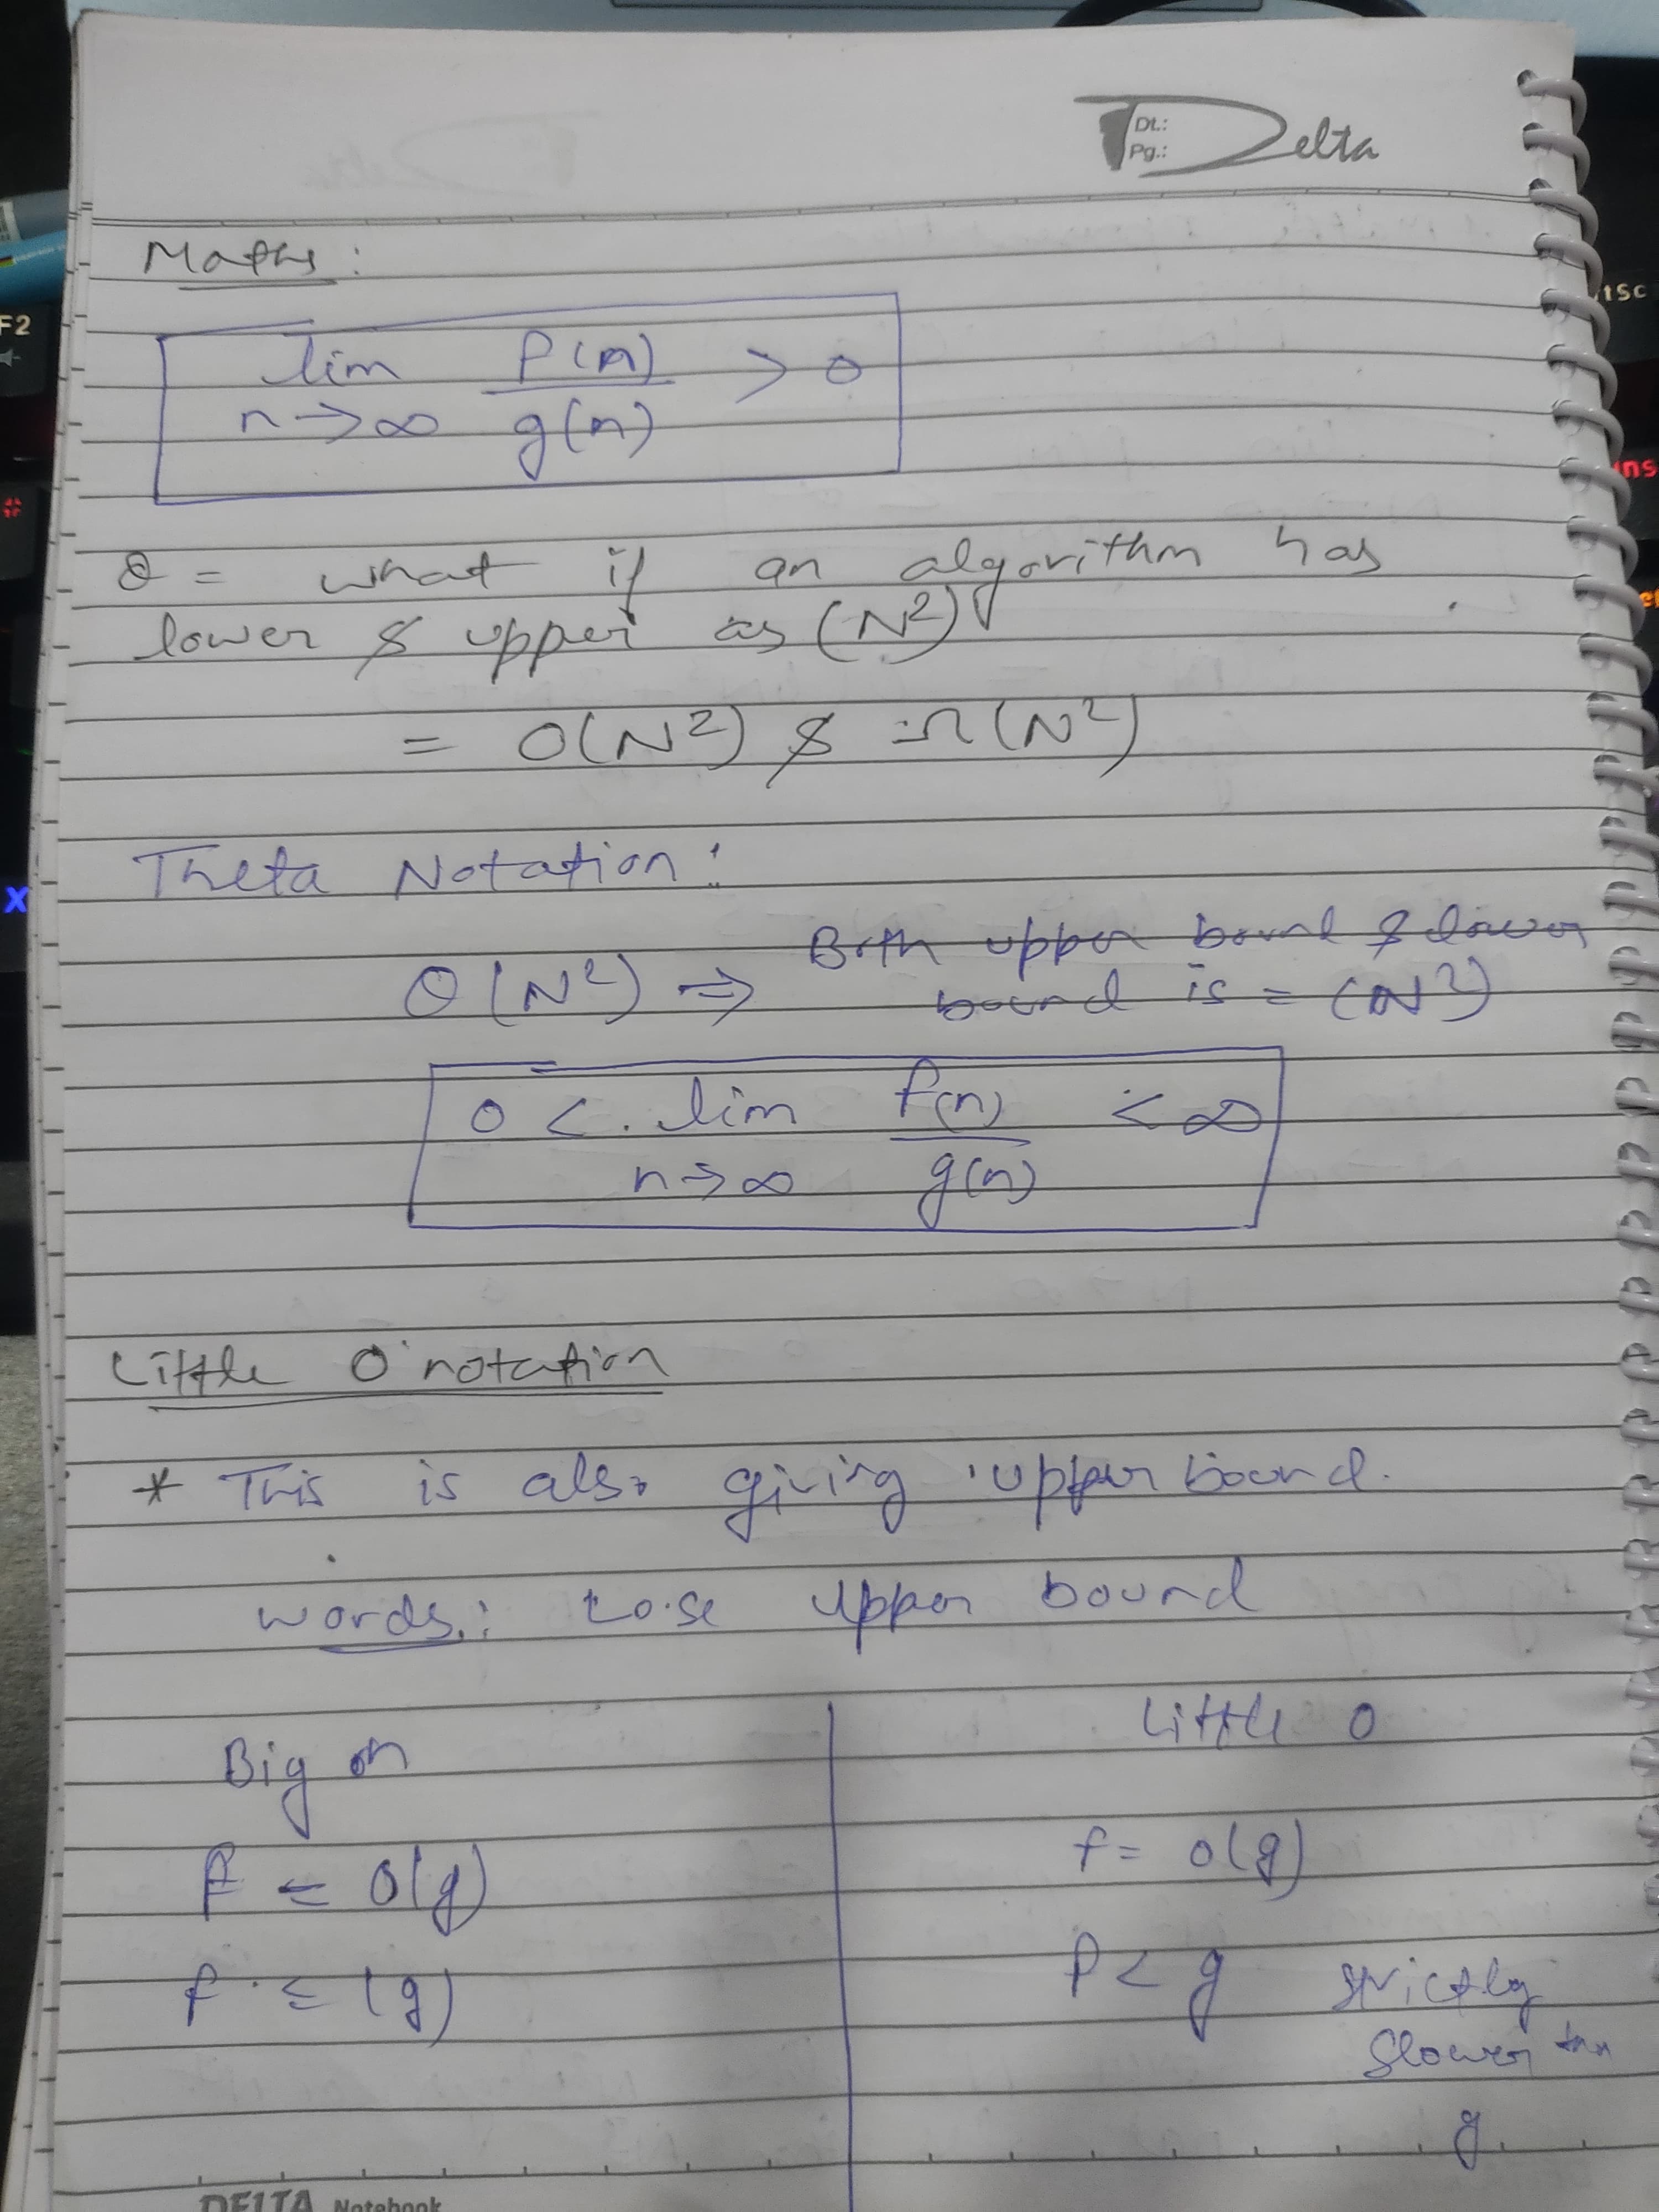 Dt.:
Pg.:
Delta
Maths:
lim f(n) > 0
n→∞ g(n)
Q = what if an algorithm has
lower & upper as (N²)
= O(N²) & Ω(N²)
Theta Notation:
Θ(N²) ⇒ Both upper bound & lower
bound is = (N²)
0 < lim f(n) < ∞
n→∞ g(n)
Little O notation
* This is also giving upper bound.
words: Lose upper bound
Big oh
Little o
f = O(g)
f = o(g)
f ≤ (g)
f < g strictly
slower than
g
DELTA Notebook
F2
X
tSc
ins